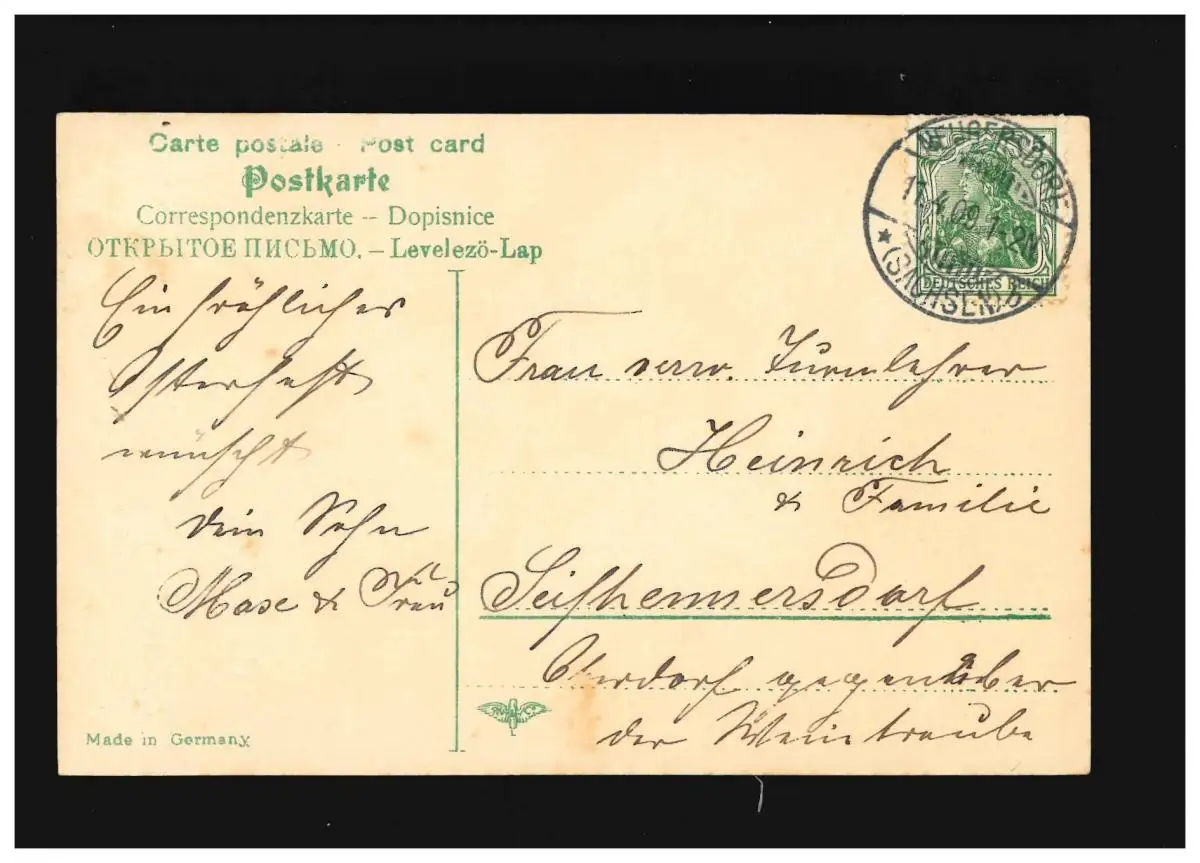 Carte postale - Post card
Postkarte
Correspondenzkarte -- Dopisnice
ОТКРЫТОЕ ПИСЬМО. – Levelező-Lap
NEUGERSDORF
11.4.09.1-2N
(SACHSEN)
DEUTSCHES REICH
Ein fröhliches
Osterfest
wünscht
Dein Sohn
Max &
Frau verw. Turnlehrer
Heinrich
& Familie
Seifhennersdorf
Oberdorf gegenüber
der Weintraube
Made in Germany